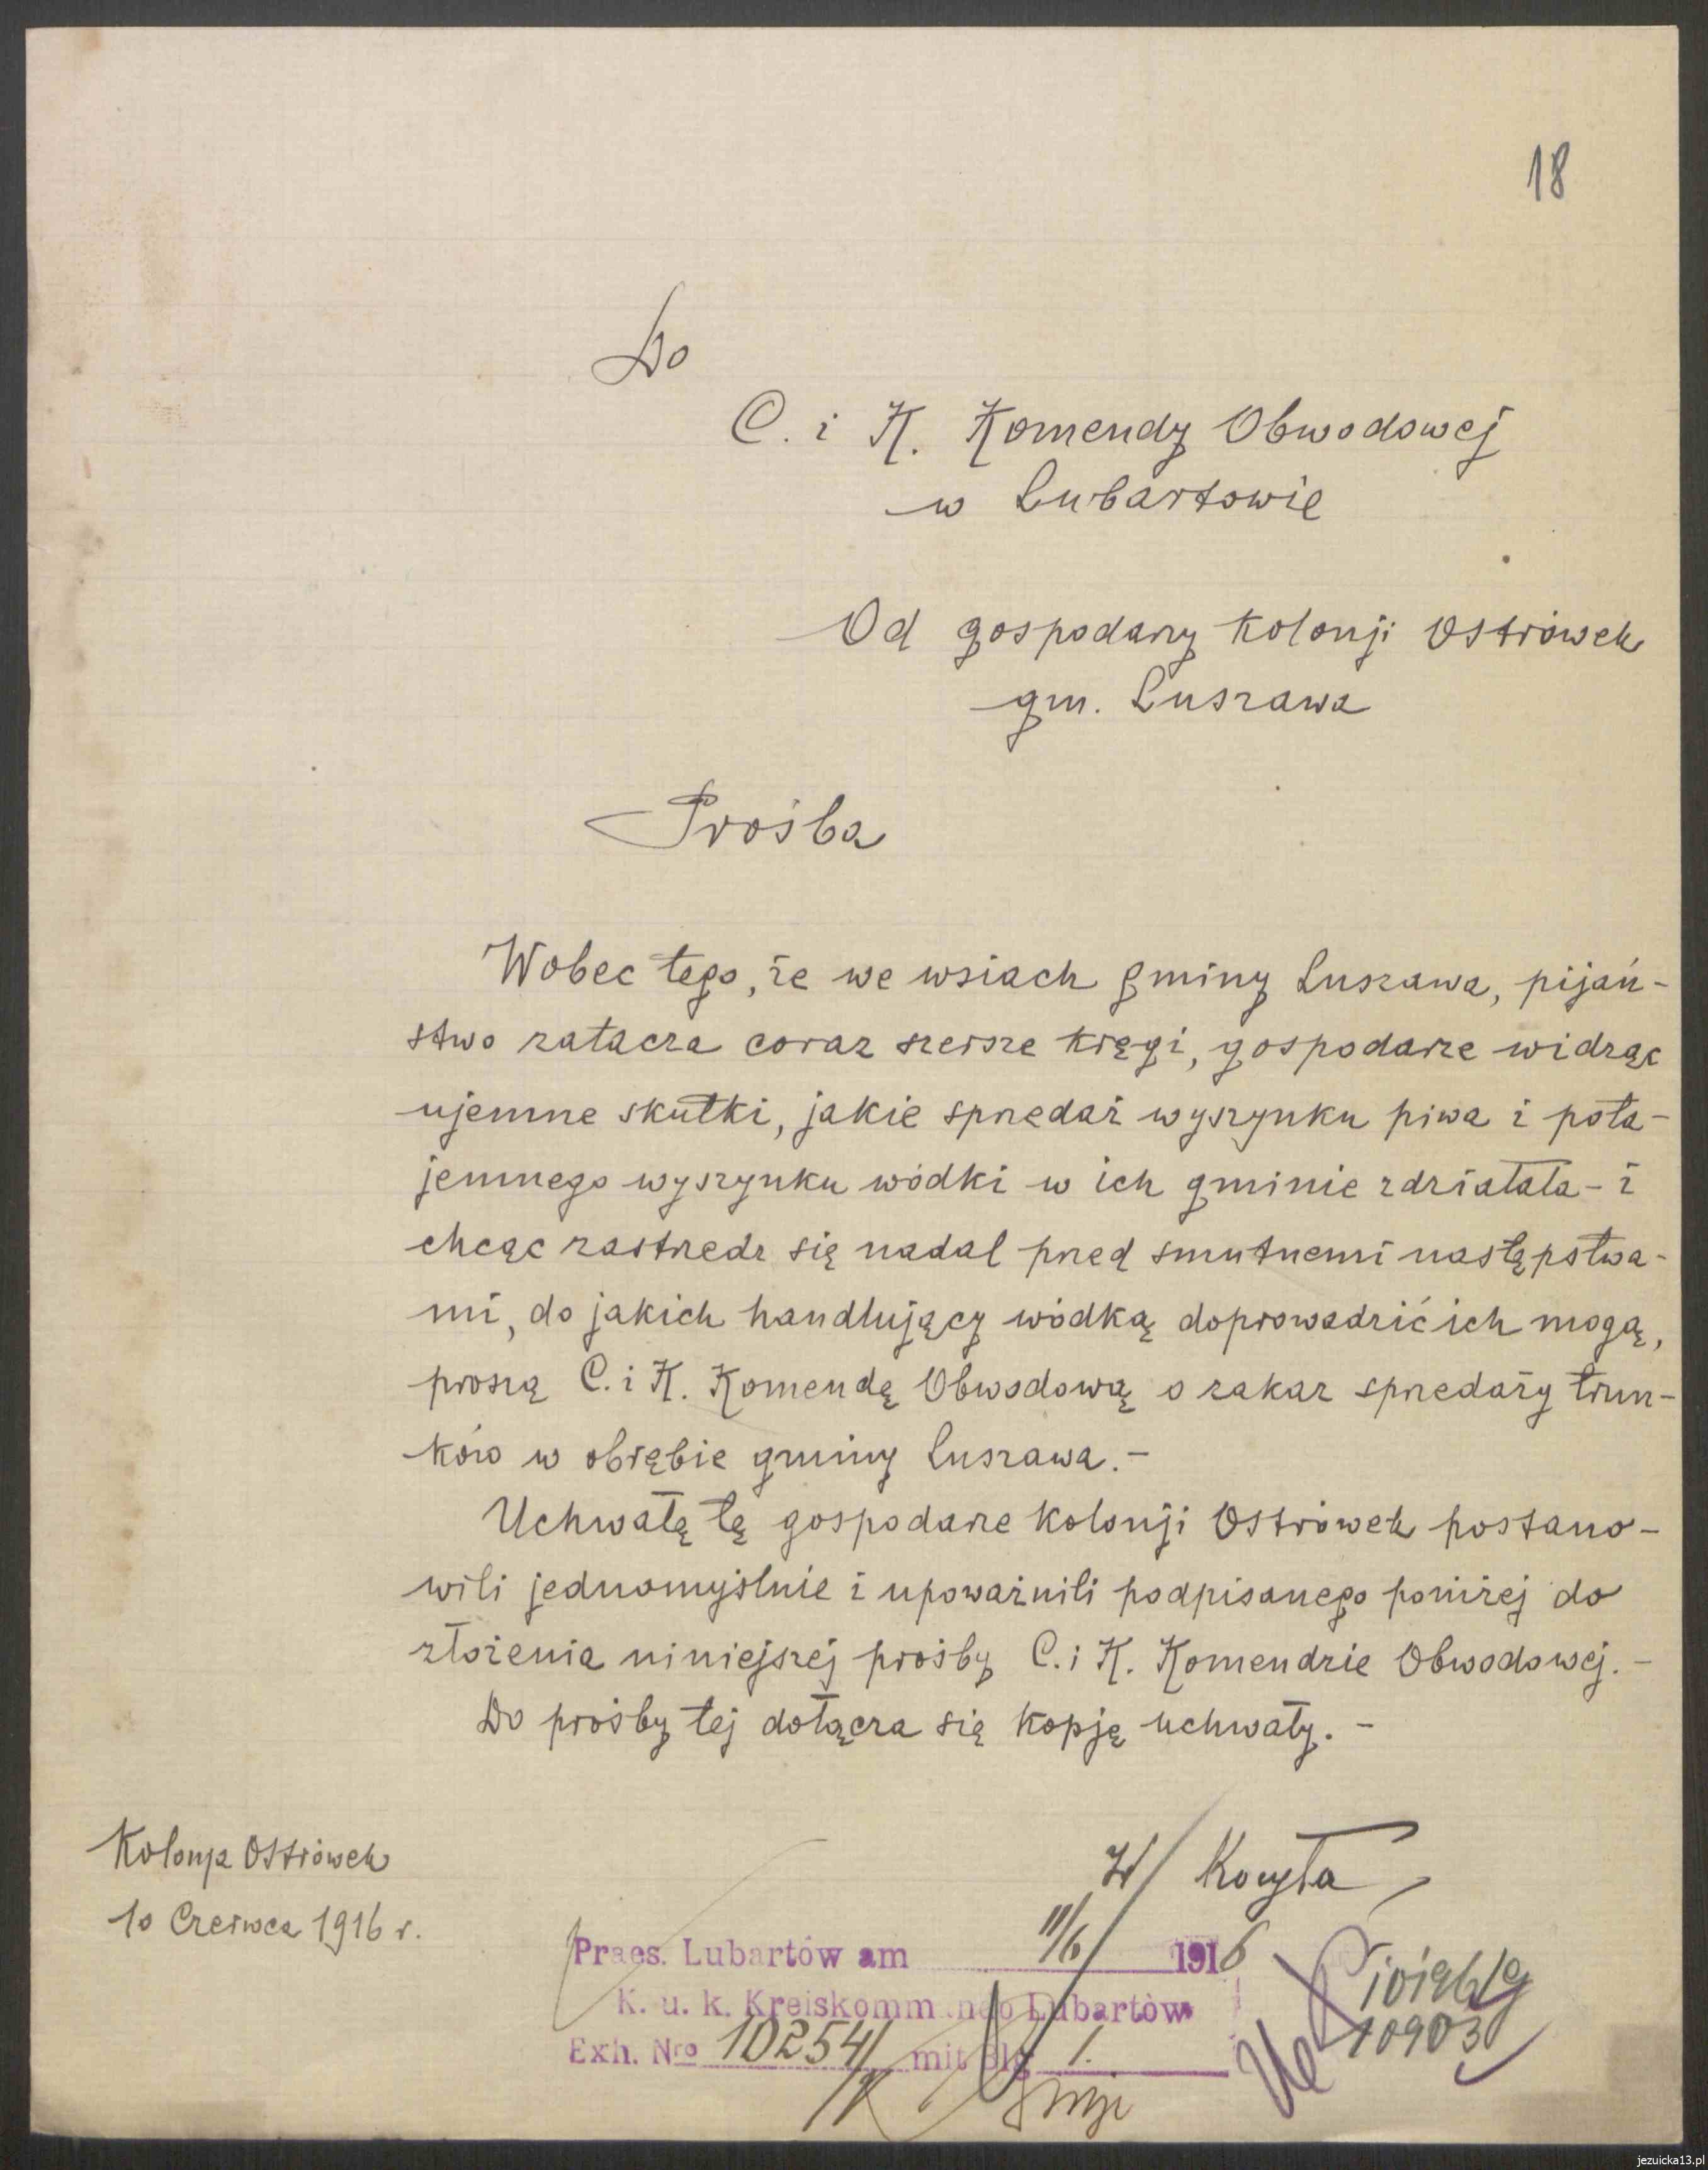 18
Do
C. i K. Komendy Obwodowej
w Lubartowie
Od gospodarzy Kolonji Ostrówek
gm. Luszawa
Prośba
Wobec tego, że we wsiach gminy Luszawa, pijań-
stwo zatacza coraz szersze kręgi, gospodarze widząc
ujemne skutki, jakie sprzedaż wyszynku piwa i pota-
jemnego wyszynku wódki w ich gminie zdziałała - i
chcąc zastrzedz się nadal przed smutnemi następstwa-
mi, do jakich handlujący wódką doprowadzić ich mogą,
proszą C. i K. Komendę Obwodową o zakaz sprzedaży trun-
ków w obrębie gminy Luszawa. -
Uchwałę tę gospodarze Kolonji Ostrówek postano-
wili jednomyślnie i upoważnili podpisanego poniżej do
złożenia niniejszej prośby C. i K. Komendzie Obwodowej. -
Do prośby tej dołącza się kopję uchwały. -
Kolonja Ostrówek
10 Czerwca 1916 r.
W/ Kocyła
Praes. Lubartów am 11/6 1916
K. u. k. Kreiskommando Lubartów
Exh. Nro 10254/ mit Blg 1.
10903
jezuicka13.pl